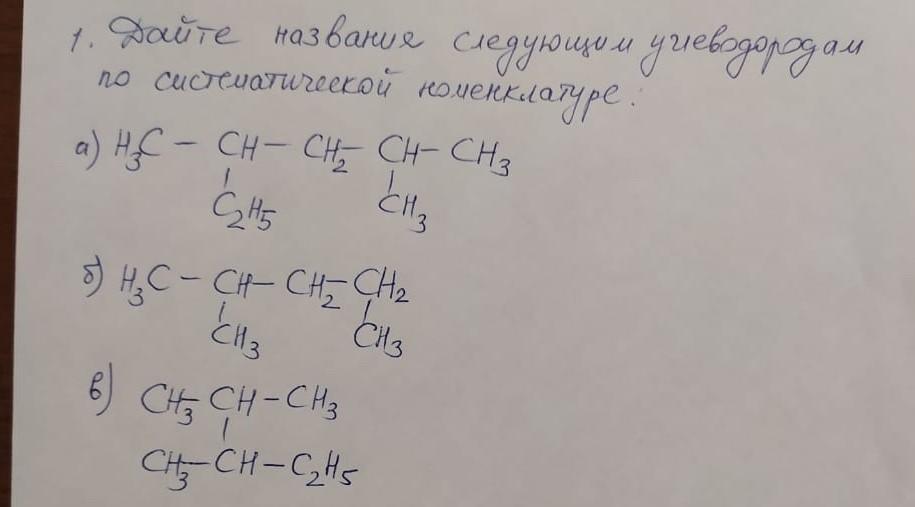 1. Дайте названия следующим углеводородам
по систематической номенклатуре:
а) H₃C – CH – CH₂ – CH – CH₃
C₂H₅ CH₃
б) H₃C – CH – CH₂ – CH₂
CH₃ CH₃
в) CH₃ – CH – CH₃
CH₃ – CH – C₂H₅